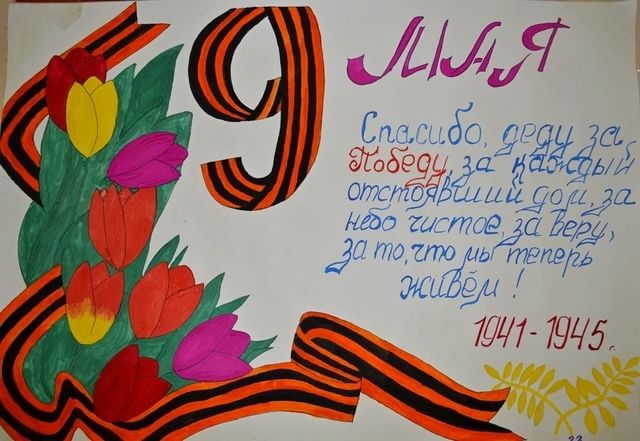 9 МАЯ
Спасибо, деду за
Победу, за каждый
отстоявший дом, за
небо чистое, за веру,
за то, что мы теперь
живём !
1941-1945г.
23